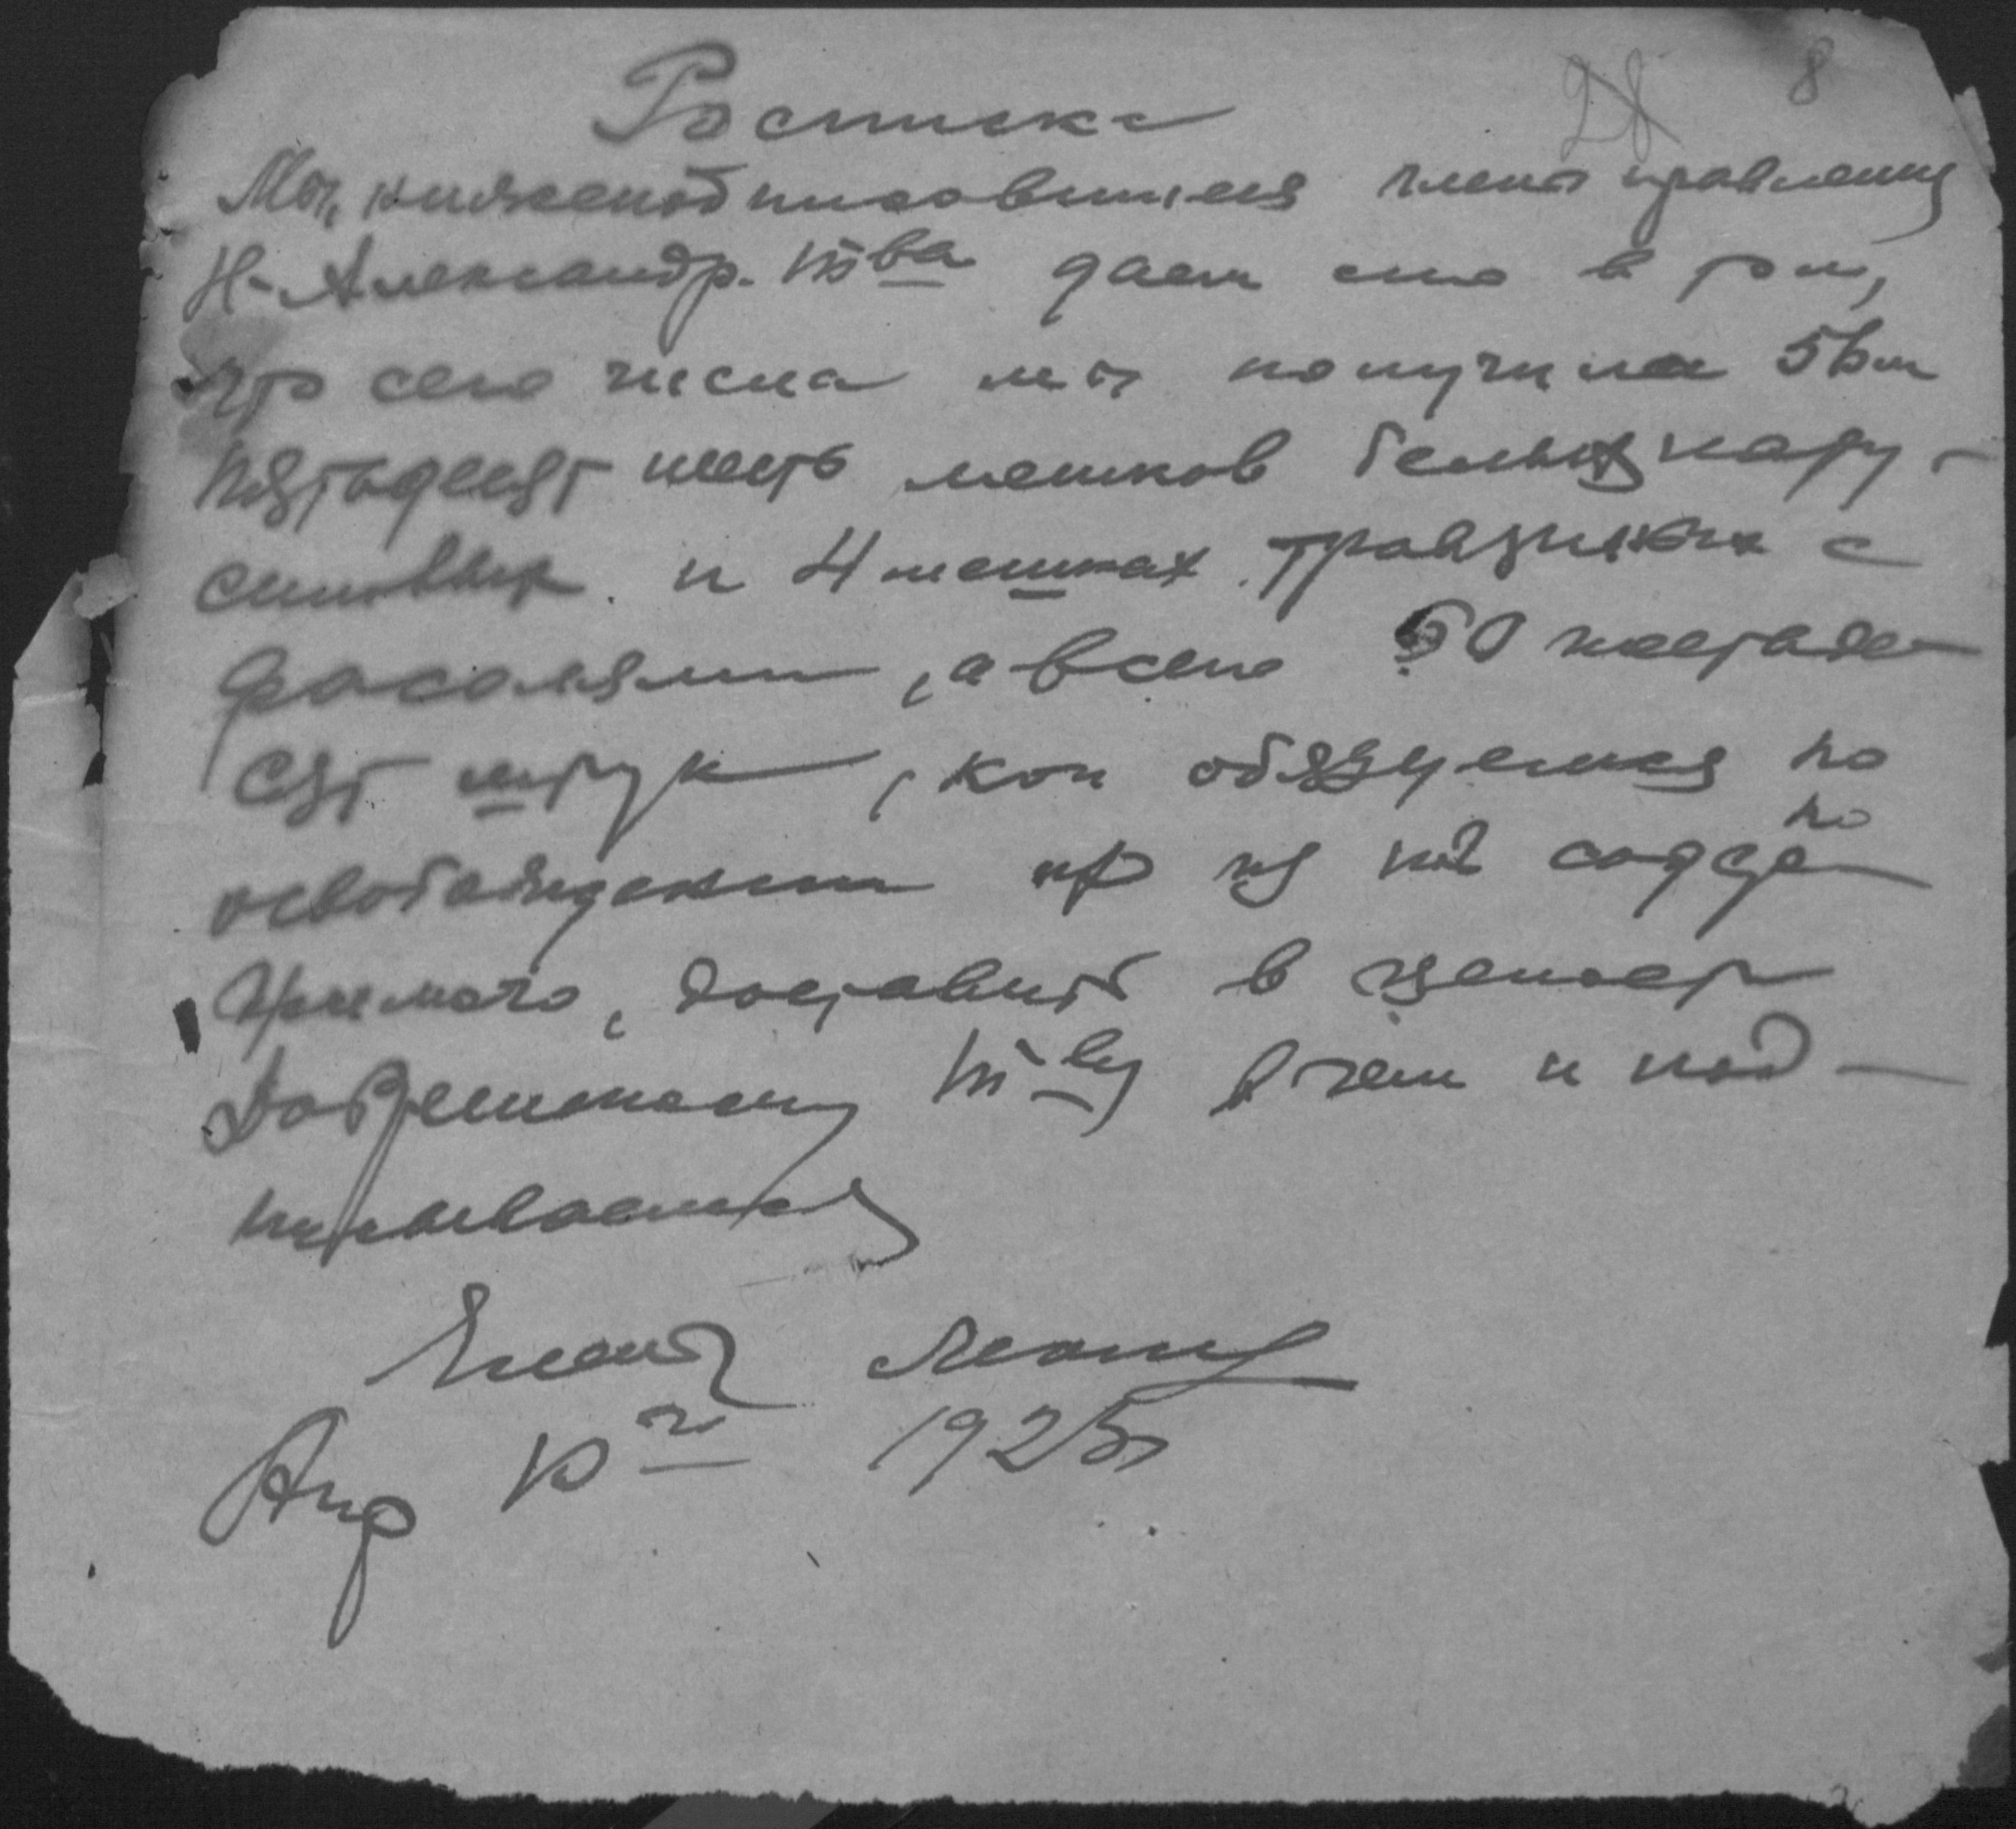 28 8
Росписка
Мы, нижеподписавшиеся члены правления
Н-Александр. т-ва даем сию в том,
что сего числа мы получили 56 ш
пятьдесят шесть мешков белых пару-
синовых и 4 мешках с
фасолями, а всего 60 шестьде-
сят штук, кои обязуемся по
освобождении из под содер
жимого, доставить в
т-ву в чем и под-
писываемся
Члены
Апр 10го 1925г